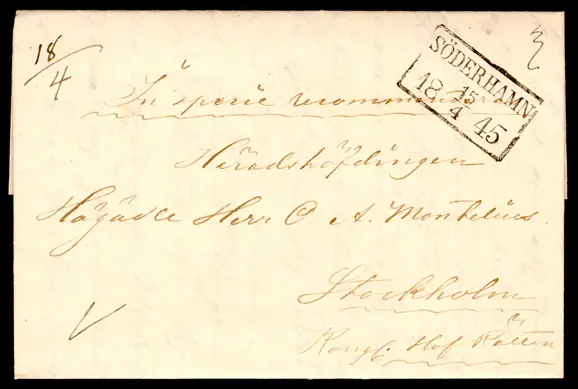 18/4
SÖDERHAMN
18 15/4 45
In specie recommendera
Häradshöfdingen
Högädle Herr C A. Montelius
Stockholm
Kongl. Hof Rätten